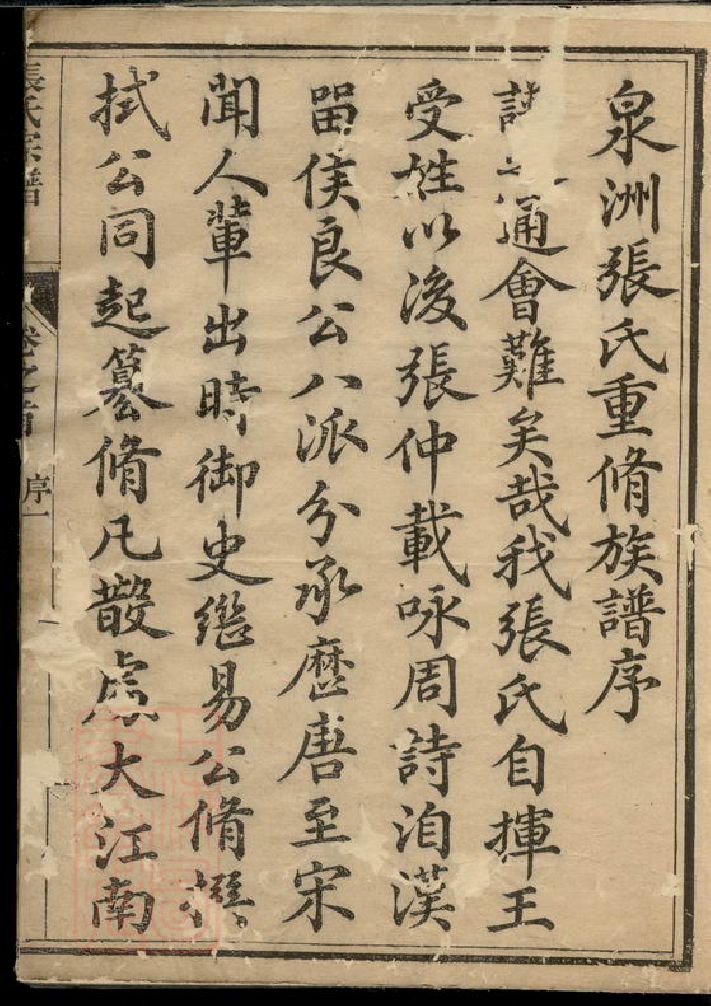 泉洲張氏重脩族譜序
譜之通會難矣哉我張氏自揮王
受姓以後張仲載咏周詩洎漢
留侯良公八派分承歷唐至宋
聞人輩出時御史繼易公脩撰
拭公同起纂脩凡散處大江南
張氏宗譜
卷之首
序一